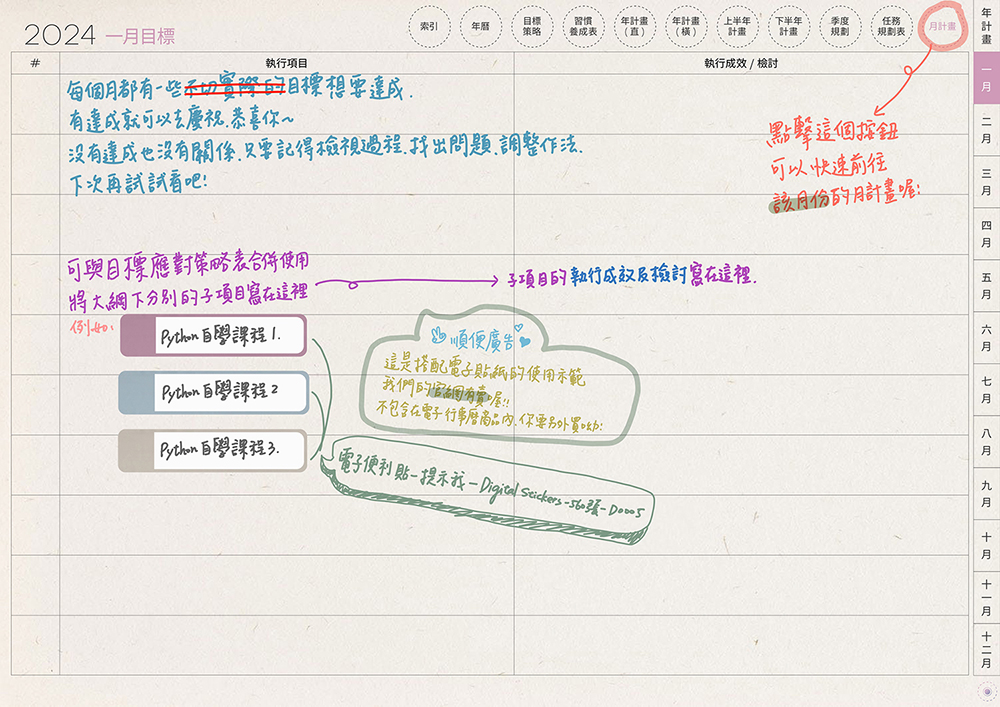 2024 一月目標
索引
年曆
目標
策略
習慣
養成表
年計畫
（直）
年計畫
（橫）
上半年
計畫
下半年
計畫
季度
規劃
任務
規劃表
月計畫
年計畫
# 執行項目 執行成效 / 檢討
每個月都有一些不切實際的目標想要達成.
有達成就可以去慶祝.恭喜你~
沒有達成也沒有關係.只要記得檢視過程.找出問題.調整作法.
下次再試試看吧!
點擊這個按鈕
可以快速前往
該月份的月計畫喔!
可與目標應對策略表合併使用
將大綱下分別的子項目寫在這裡
子項目的執行成效及檢討寫在這裡.
例如:
Python 自學課程 1.
Python 自學課程 2
Python 自學課程 3.
順便廣告
這是搭配電子貼紙的使用示範
我們的官網有賣喔!!
不包含在電子行事曆商品內.你要另外買呦!
電子便利貼-提示我-Digital Stickers-560張-D0005
一月
二月
三月
四月
五月
六月
七月
八月
九月
十月
十一月
十二月